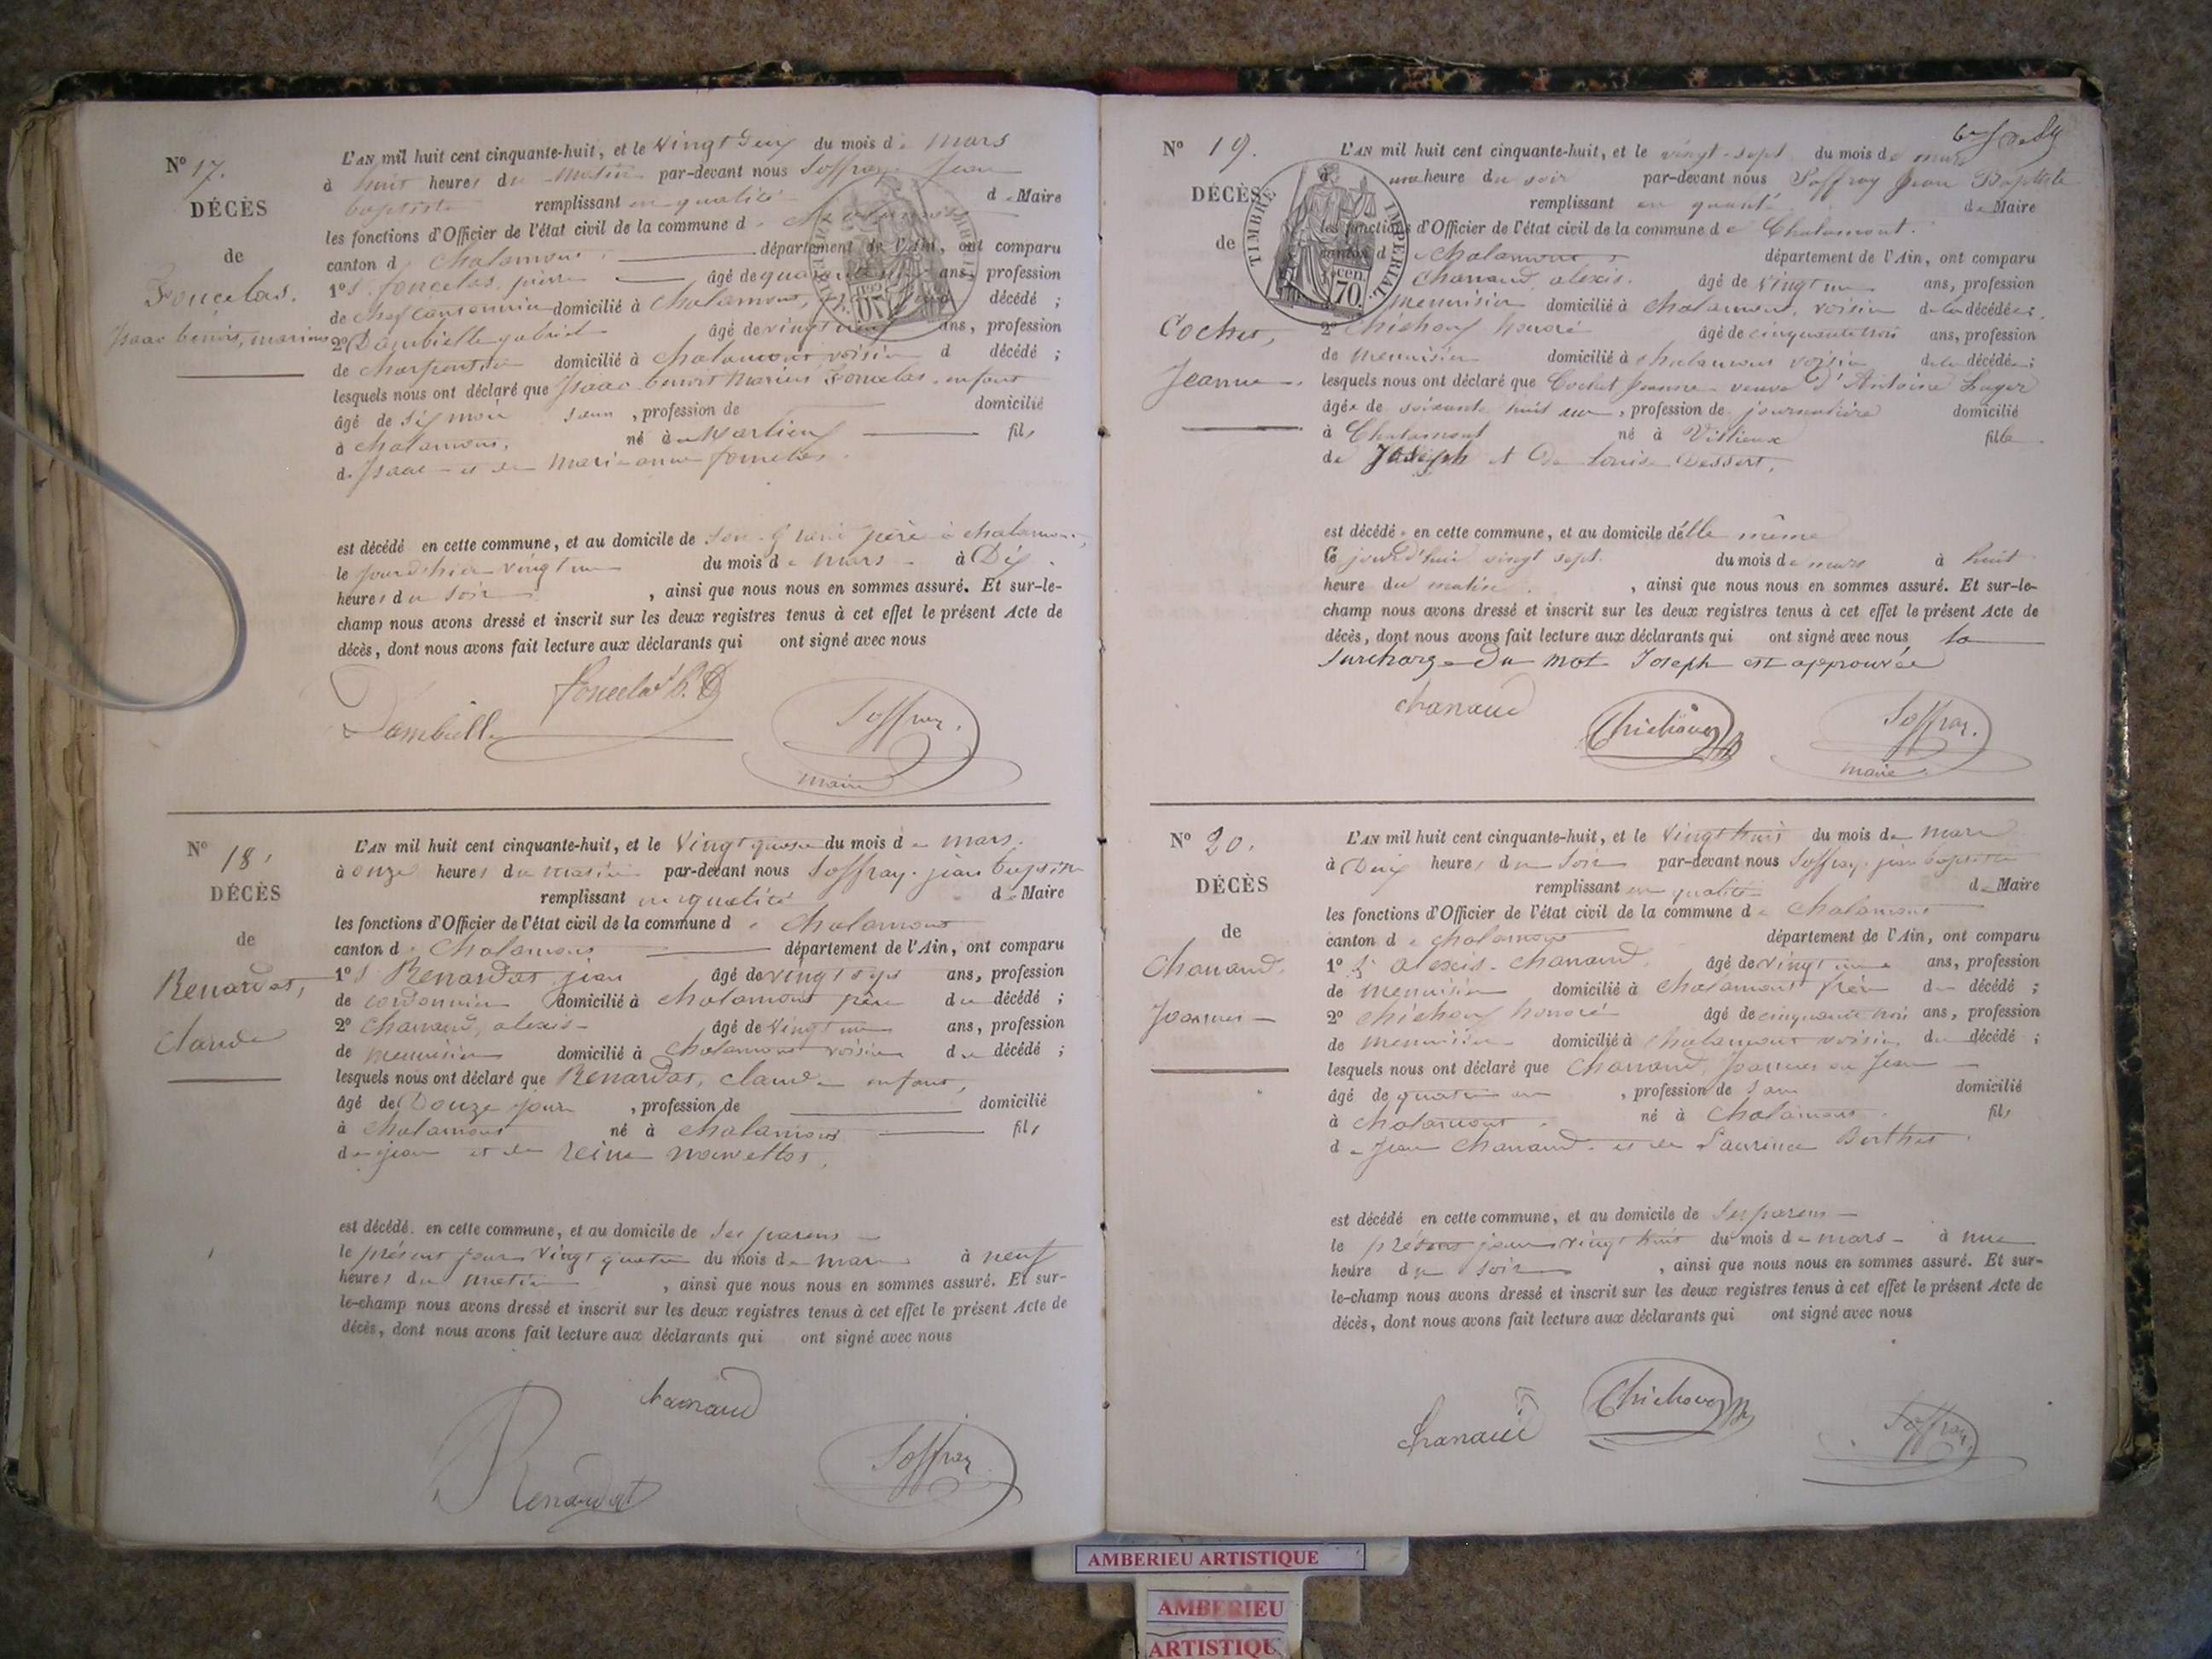 N° 17.
DÉCÈS
de
Foncelas.
Isaac benoit, marius
L'AN mil huit cent cinquante-huit, et le vingt deux du mois de mars
à huit heures du matin par-devant nous Soffray Jean
baptiste remplissant en qualité de Maire
les fonctions d'Officier de l'état civil de la commune de
canton de Chalamont département de l'Ain, ont comparu
1° S. foncelas, pierre âgé de ans, profession
de chef cantonnier domicilié à Chalamont, décédé ;
2° Dambielle gabriel âgé de vingt ans, profession
de charpentier domicilié à Chalamont voisin d décédé ;
lesquels nous ont déclaré que Isaac benoit Marius Foncelas, enfant
âgé de six mois , profession de domicilié
à chalamont, né à fils
de Isaac et de Marie anne
est décédé en cette commune, et au domicile de son grand père à chalamont,
le jour d'hier vingt un du mois de mars à Dix
heures du soir , ainsi que nous nous en sommes assuré. Et sur-le-
champ nous avons dressé et inscrit sur les deux registres tenus à cet effet le présent Acte de
décès, dont nous avons fait lecture aux déclarants qui ont signé avec nous
Dambielle Soffray
maire
N° 18.
DÉCÈS
de
Renardat,
claude
L'AN mil huit cent cinquante-huit, et le vingt quatre du mois de mars.
à onze heures du matin par-devant nous Soffray jean baptiste
remplissant en qualité de Maire
les fonctions d'Officier de l'état civil de la commune de Chalamont
canton de Chalamont département de l'Ain, ont comparu
1° S Renardat jean âgé de vingt sept ans, profession
de cordonnier domicilié à chalamont père du décédé ;
2° Chanaud, alexis âgé de vingt un ans, profession
de menuisier domicilié à Chalamont voisin du décédé ;
lesquels nous ont déclaré que Renardat, claude enfant,
âgé de Douze jours , profession de domicilié
à chalamont né à chalamont fils
de jean et de reine
est décédé en cette commune, et au domicile de ses parens
le présent jour vingt quatre du mois de mars à neuf
heures du matin , ainsi que nous nous en sommes assuré. Et sur-
le-champ nous avons dressé et inscrit sur les deux registres tenus à cet effet le présent Acte de
décès, dont nous avons fait lecture aux déclarants qui ont signé avec nous
chanaud
Renardat Soffray
N° 19.
DÉCÈS
de
Cochet,
Jeanne
TIMBRE IMPERIAL
70 cen.
L'AN mil huit cent cinquante-huit, et le vingt-sept du mois de mars
à une heure du soir par-devant nous Soffray Jean Baptiste
remplissant en qualité de Maire
les fonctions d'Officier de l'état civil de la commune de Chalamont.
canton de Chalamont département de l'Ain, ont comparu
chanaud, alexis. âgé de vingt un ans, profession
menuisier domicilié à chalamont, voisin de la décédée ;
2° Chichoux honoré âgé de cinquante trois ans, profession
de menuisier domicilié à chalamont voisin de la décédée ;
lesquels nous ont déclaré que Cochet Jeanne veuve d'Antoine Luyer
âgée de soixante huit ans, profession de journalière domicilié
à Chalamont né à Villieux fille
de Joseph et de Louise Dessert,
est décédée en cette commune, et au domicile d'elle même
le jourd'hui vingt sept du mois de mars à huit
heure du matin , ainsi que nous nous en sommes assuré. Et sur-le-
champ nous avons dressé et inscrit sur les deux registres tenus à cet effet le présent Acte de
décès, dont nous avons fait lecture aux déclarants qui ont signé avec nous, la
surcharge du mot Joseph est approuvée
chanaud Chichoux Soffray.
maire
N° 20.
DÉCÈS
de
Chanaud.
Joannes
L'AN mil huit cent cinquante-huit, et le vingt huit du mois de mars
à Deux heures du soir par-devant nous Soffray jean baptiste
remplissant en qualité de Maire
les fonctions d'Officier de l'état civil de la commune de Chalamont
canton de chalamont département de l'Ain, ont comparu
1° S. alexis chanaud. âgé de vingt un ans, profession
de menuisier domicilié à chalamont frère du décédé ;
2° chichoux honoré âgé de cinquante trois ans, profession
de menuisier domicilié à chalamont voisin du décédé ;
lesquels nous ont déclaré que Chanaud, Joannes ou Jean
âgé de quatre ans , profession de sans domicilié
à chalamont né à Chalamont. fils
de Jean Chanaud et de Laurence Berthet.
est décédé en cette commune, et au domicile de ses parens
le présent jour vingt huit du mois de mars à une
heure du soir , ainsi que nous nous en sommes assuré. Et sur-
le-champ nous avons dressé et inscrit sur les deux registres tenus à cet effet le présent Acte de
décès, dont nous avons fait lecture aux déclarants qui ont signé avec nous
chanaud Chichoux Soffray
AMBERIEU ARTISTIQUE
AMBERIEU
ARTISTIQUE